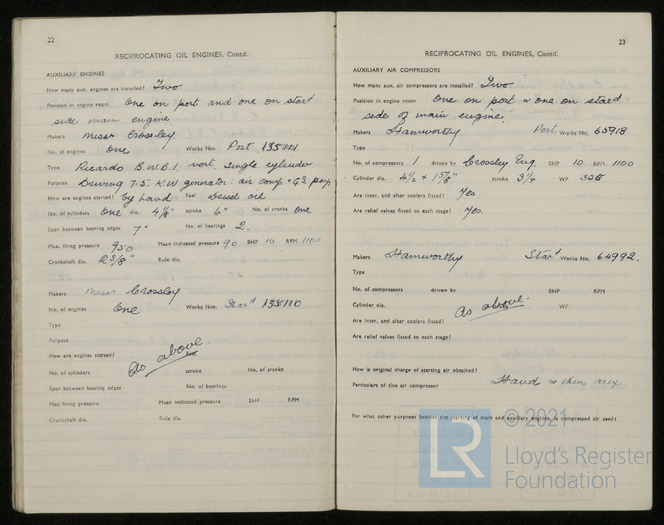 22
RECIPROCATING OIL ENGINES, Contd.
AUXILIARY ENGINES
How many aux. engines are installed? Two
Position in engine room One on port and one on starbd
side main engine
Makers Messrs Crossley
No. of engines One Works Nos. Port.
Type Ricardo B.W.B.1. vert. single cylinder
Purpose Driving 7.5. K.W generator: air comp. & G.S. pump
How are engines started? by hand Fuel Diesel oil
No. of cylinders One dia. 4 1/8" stroke 6" No. of cranks One
Span between bearing edges 7" No. of bearings 2.
Max. firing pressure 950 Mean indicated pressure 90 BHP 10 RPM 1100
Crankshaft dia. 2 3/8" Rule dia.
Makers Messrs Crossley
No. of engines One Works Nos. Starbd
Type
Purpose
How are engines started? As above. Fuel
No. of cylinders stroke No. of cranks
Span between bearing edges No. of bearings
Max. firing pressure Mean indicated pressure BHP RPM
Crankshaft dia. Rule dia.
23
RECIPROCATING OIL ENGINES, Contd.
AUXILIARY AIR COMPRESSORS
How many aux. air compressors are installed? Two
Position in engine room One on port & one on starbd
side of main engine.
Makers Hamworthy Port Works No. 65918
Type
No. of compressors 1 driven by Crossley Eng. BHP 10 RPM 1100
Cylinder dia. stroke 3 1/4 WP
Are inter, and after coolers fitted? Yes
Are relief valves fitted to each stage? Yes.
Makers Hamworthy Starbd Works No. 64992.
Type
No. of compressors driven by BHP RPM
Cylinder dia. As above. WP
Are inter, and after coolers fitted?
Are relief valves fitted to each stage?
How is original charge of starting air obtained?
Particulars of this air compressor Hand & then aux.
For what other purposes besides the starting of main and auxiliary engines, is compressed air used?
© 2021
LR
Lloyd's Register
Foundation